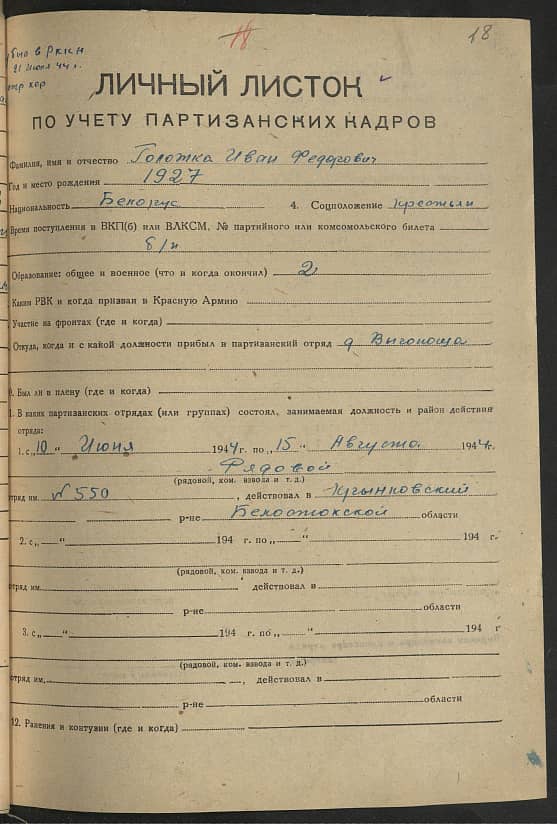 18 18
в РККА
21 Июля 44 г.
ЛИЧНЫЙ ЛИСТОК
ПО УЧЕТУ ПАРТИЗАНСКИХ КАДРОВ
Фамилия, имя и отчество Голожка Иван Федорович
Год и место рождения 1927
Национальность Белорус 4. Соцположение крестьян
Время поступления в ВКП(б) или ВЛКСМ, № партийного или комсомольского билета
б/п
Образование: общее и военное (что и когда окончил) 2
Каким РВК и когда призван в Красную Армию
Участие на фронтах (где и когда)
Откуда, когда и с какой должности прибыл в партизанский отряд д Выгоноща
Был ли в плену (где и когда)
В каких партизанских отрядах (или группах) состоял, занимаемая должность и район действия
отряда:
1. с „10 “ Июня 1944 г. по „15 “ Августа 1944 г.
Рядовой
(рядовой, ком. взвода и т. д.)
отряд им. № 550 , действовал в Крынковский
р-не Белостокской области
2. с „ “ 194 г. по „ “ 194 г.
(рядовой, ком. взвода и т. д.)
отряд им. действовал в
р-не области
3. с „ “ 194 г. по „ “ 194 г
(рядовой, ком. взвода и т. д.)
отряд им. , действовал в
р-не области
12. Ранения и контузии (где и когда)